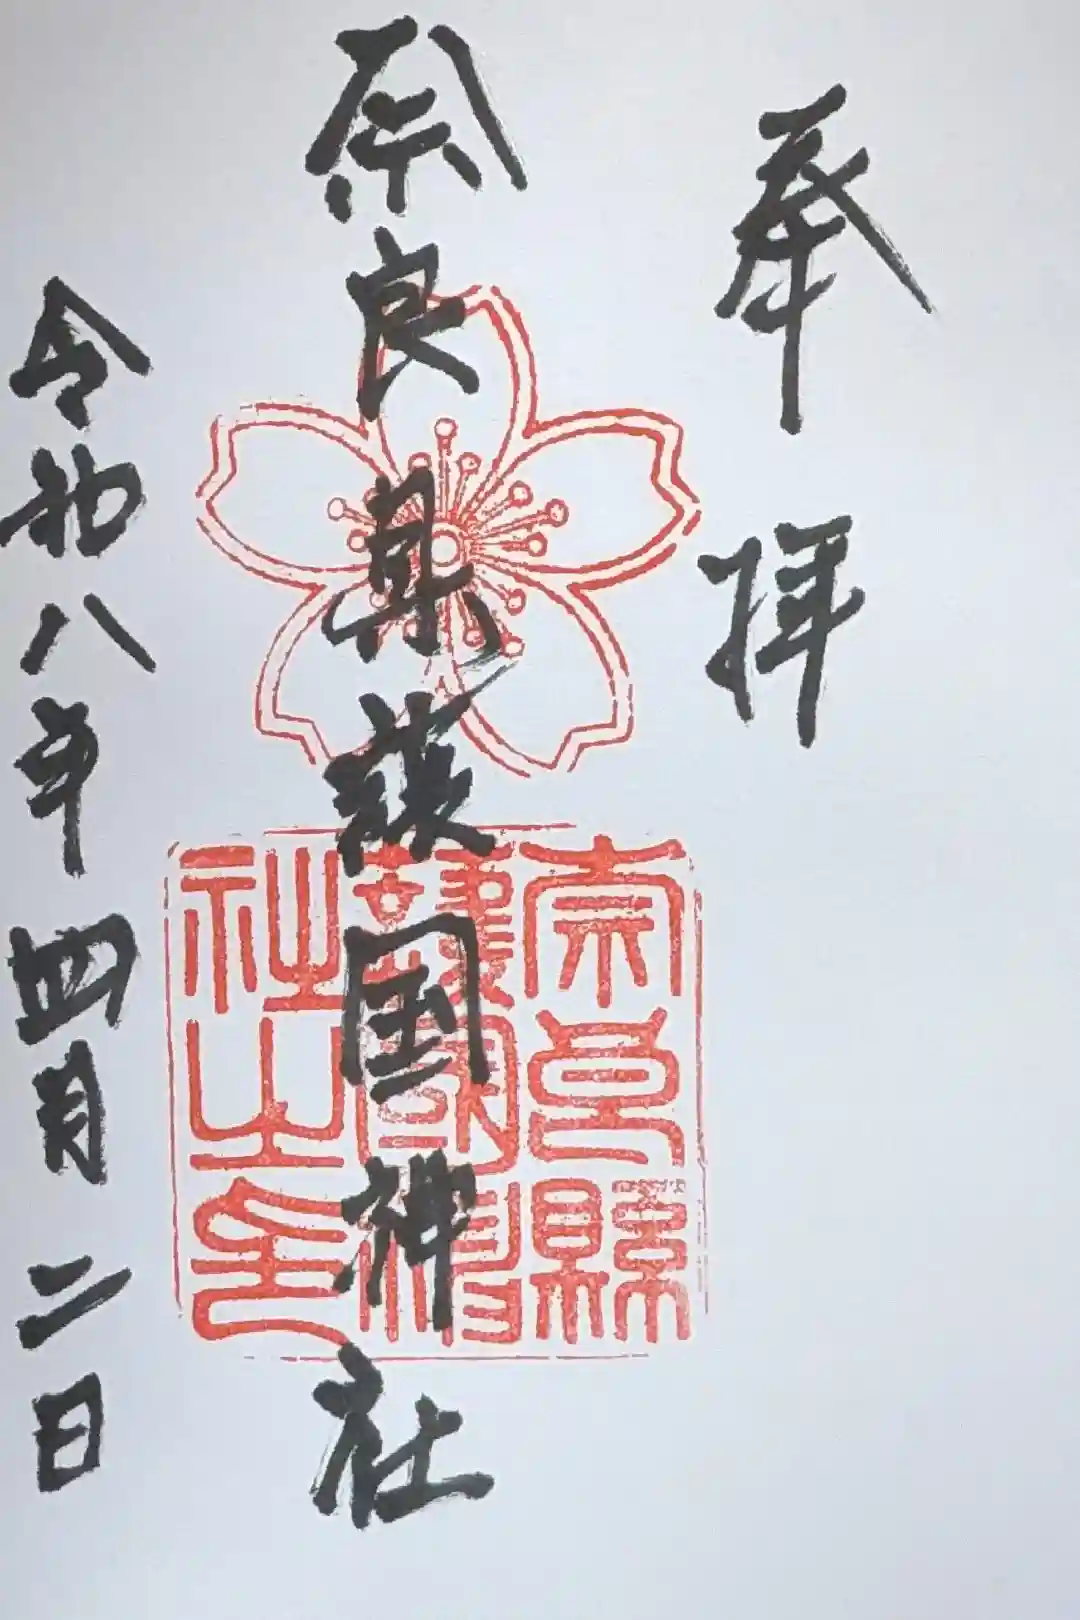 奉拝
奈良県護国神社
奈良縣
護國神
社之印
令和八年四月二日